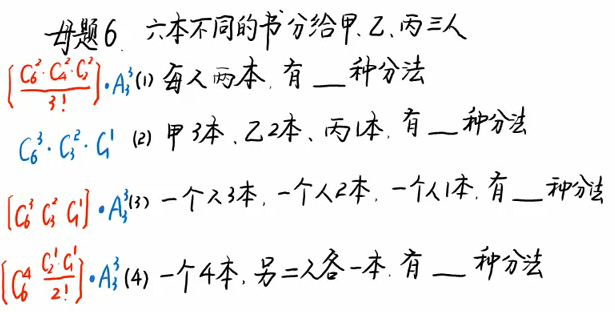 母题6. 六本不同的书分给甲、乙、丙三人
[C₆²·C₄²·C₂²/3!]·A₃³ (1) 每人两本, 有 __ 种分法
C₆³·C₃²·C₁¹ (2) 甲3本、乙2本、丙1本, 有 __ 种分法
[C₆³ C₃² C₁¹]·A₃³ (3) 一个人3本, 一个人2本, 一个人1本, 有 __ 种分法
[C₆⁴ C₂¹·C₁¹/2!]·A₃³ (4) 一个4本, 另二人各一本, 有 __ 种分法